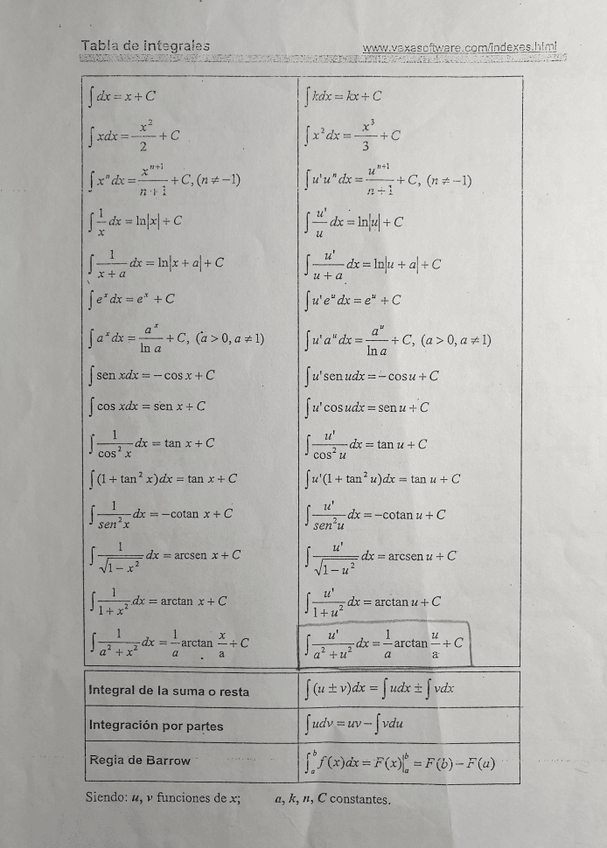 Tabla de integrales www.vaxasoftware.com/indexes.html
∫dx = x + C ∫kdx = kx + C
∫xdx = x²/2 + C ∫x²dx = x³/3 + C
∫xⁿdx = xⁿ⁺¹/(n+1) + C, (n ≠ −1) ∫u'uⁿdx = uⁿ⁺¹/(n+1) + C, (n ≠ −1)
∫1/x dx = ln|x| + C ∫u'/u dx = ln|u| + C
∫1/(x+a) dx = ln|x + a| + C ∫u'/(u+a) dx = ln|u + a| + C
∫eˣdx = eˣ + C ∫u'eᵘdx = eᵘ + C
∫aˣdx = aˣ/ln a + C, (a > 0, a ≠ 1) ∫u'aᵘdx = aᵘ/ln a + C, (a > 0, a ≠ 1)
∫sen xdx = −cos x + C ∫u' sen udx = −cos u + C
∫cos xdx = sen x + C ∫u' cos udx = sen u + C
∫1/cos² x dx = tan x + C ∫u'/cos² u dx = tan u + C
∫(1 + tan² x)dx = tan x + C ∫u'(1 + tan² u)dx = tan u + C
∫1/sen²x dx = −cotan x + C ∫u'/sen²u dx = −cotan u + C
∫1/√(1−x²) dx = arcsen x + C ∫u'/√(1−u²) dx = arcsen u + C
∫1/(1+x²) dx = arctan x + C ∫u'/(1+u²) dx = arctan u + C
∫1/(a²+x²) dx = 1/a arctan x/a + C ∫u'/(a²+u²) dx = 1/a arctan u/a + C
Integral de la suma o resta ∫(u ± v)dx = ∫udx ± ∫vdx
Integración por partes ∫udv = uv − ∫vdu
Regla de Barrow ∫ₐᵇ f(x)dx = F(x)|ₐᵇ = F(b) − F(a)
Siendo: u, v funciones de x; a, k, n, C constantes.